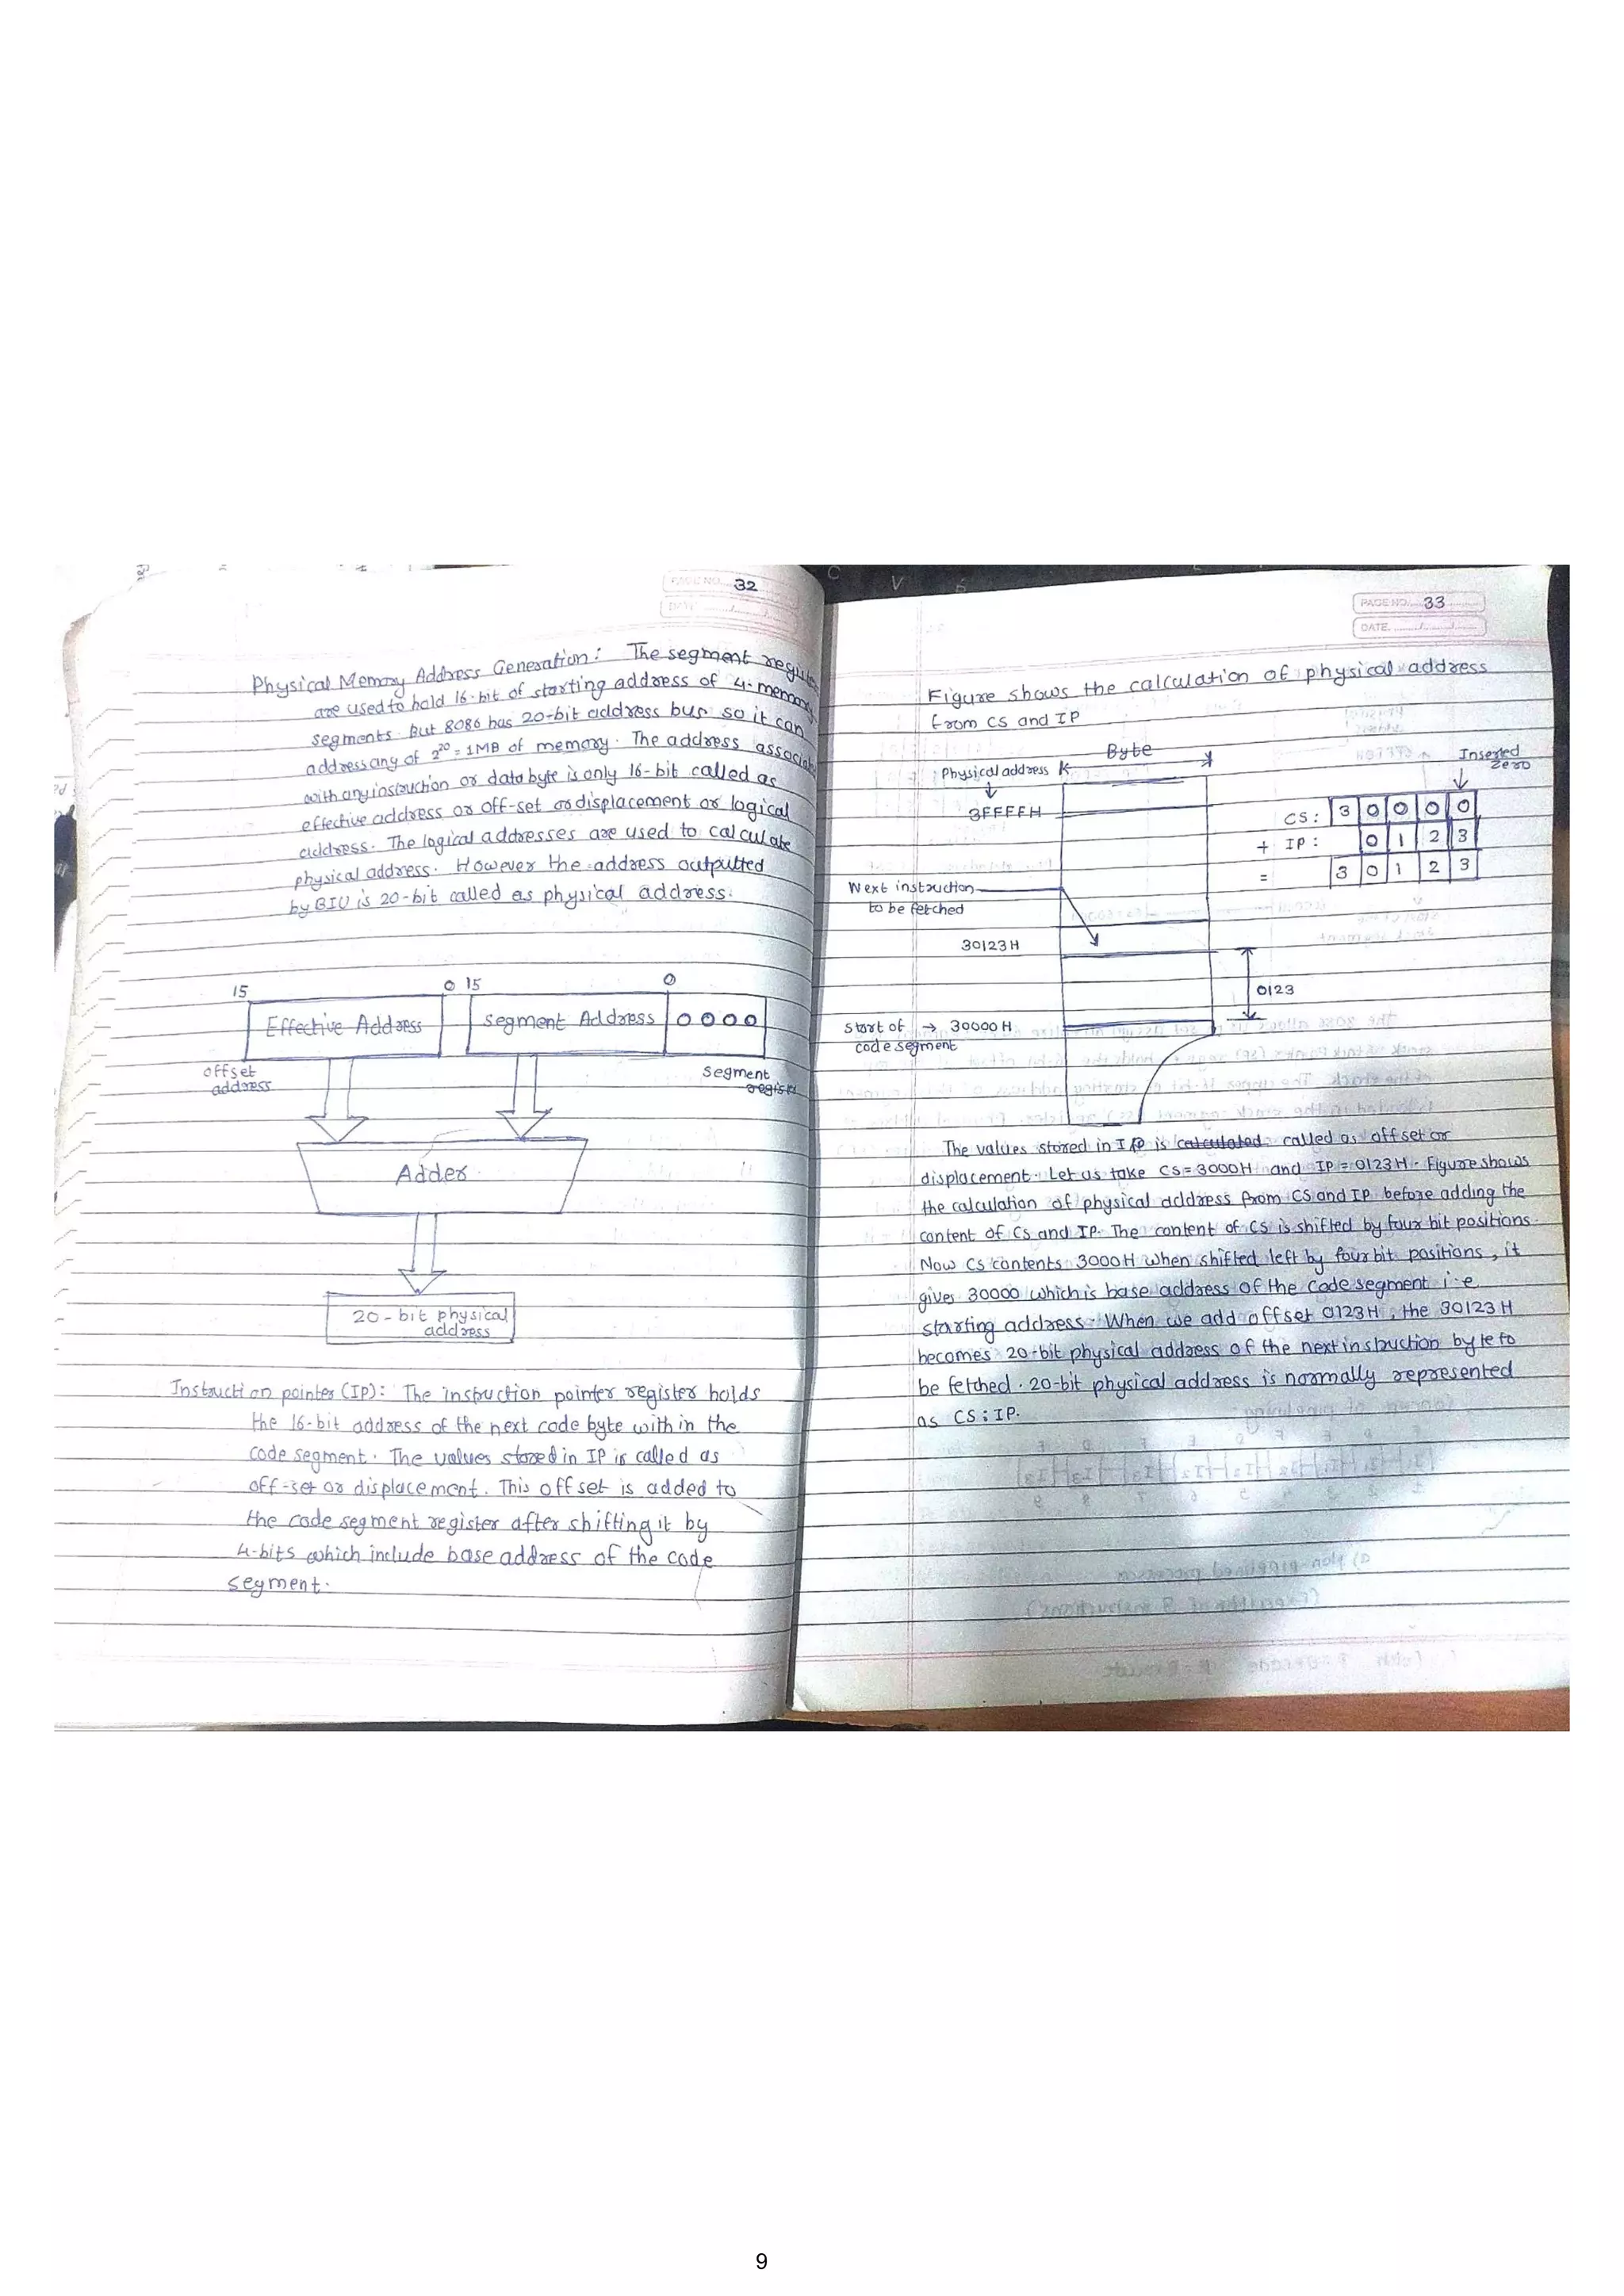 PAGE NO. 32
DATE
Physical Memory Address Generation : The segment register
are used to hold 16-bit of starting address of 4-memory
segments. But 8086 has 20-bit address bus so it can
address any of 2²⁰ = 1MB of memory. The address associated
with any instruction or data byte is only 16-bit called as
effective address or off-set or displacement or logical
address. The logical addresses are used to calculate
physical address. However the address outputted
by BIU is 20-bit called as physical address.
15 0 15 0
Effective Address Segment Address 0 0 0 0
offset
address
Segment
register
Adder
20-bit physical
address
Instruction pointer (IP): The instruction pointer register holds
the 16-bit address of the next code byte within the
code segment. The values stored in IP is called as
off-set or displacement. This offset is added to
the code segment register after shifting it by
4-bits which include base address of the code
segment.
PAGE NO. 33
DATE
Figure shows the calculation of physical address
from CS and IP
Byte
Physical address
3FFFFH
Inserted
Zero
CS: 3 0 0 0 0
+ IP: 0 1 2 3
= 3 0 1 2 3
Next instruction
to be fetched
30123H
0123
Start of → 30000H
code segment
The values stored in IP is calculated called as offset or
displacement. Let us take CS=3000H and IP=0123H. Figure shows
the calculation of physical address from CS and IP before adding the
content of CS and IP. The content of CS is shifted by four bit positions.
Now CS contents 3000H when shifted left by four bit positions, it
gives 30000 which is base address of the code segment i.e
starting address. When we add offset 0123H, the 30123H
becomes 20-bit physical address of the next instruction byte to
be fetched. 20-bit physical address is normally represented
as CS:IP.
9